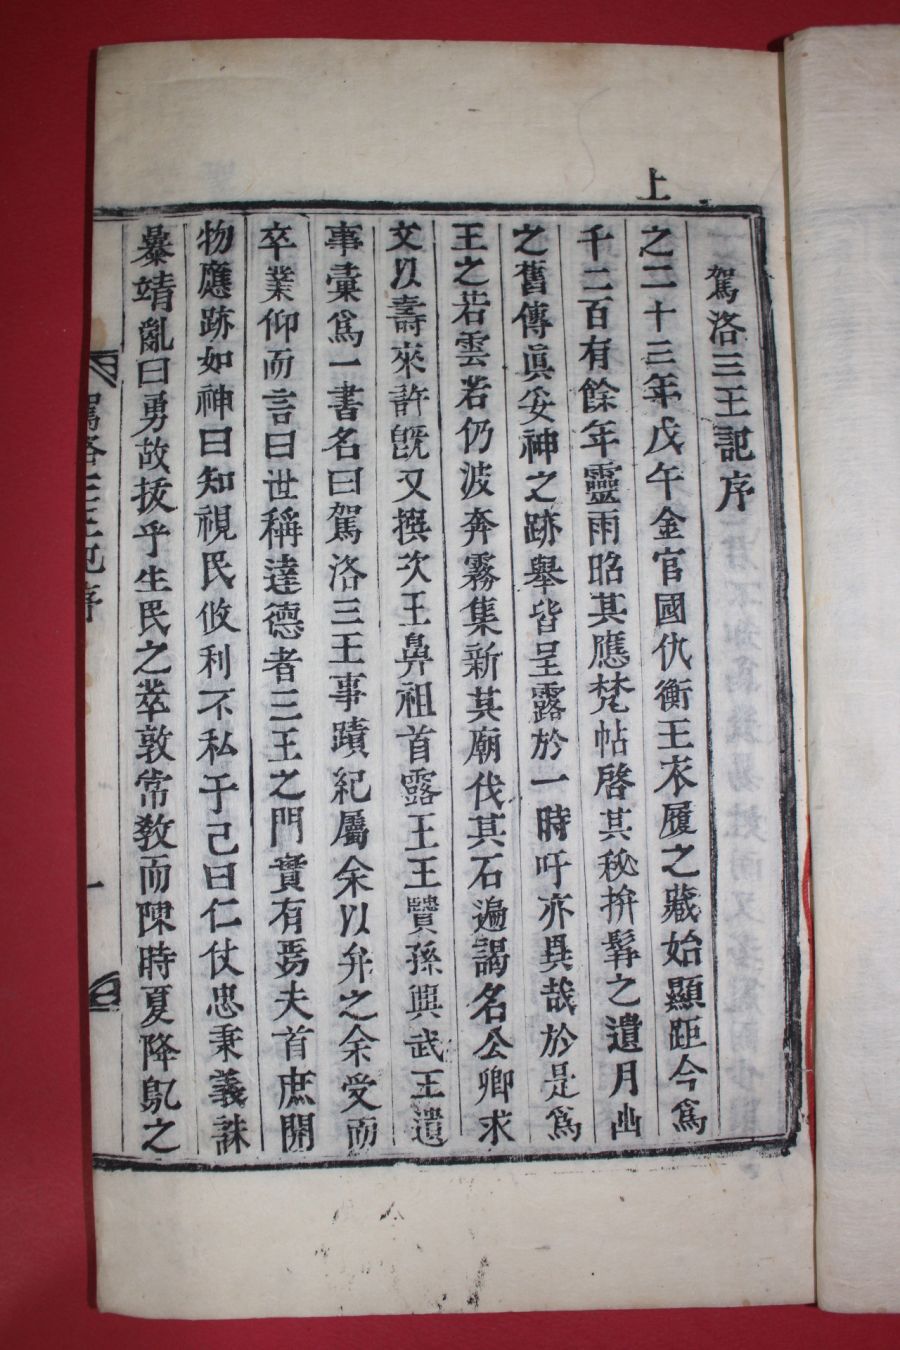 駕洛三王記序
上
之二十三年戊午金官國仇衡王衣履之藏始顯距今爲
千二百有餘年靈雨昭其應梵帖啓其秘拚髯之遺月幽
之舊傳眞妥神之跡擧皆呈露於一時吁亦異哉於是爲
王之若雲若仍波奔霧集新其廟伐其石遍謁名公卿求
文以壽來許旣又撰次王鼻祖首露王王贒孫興武王遺
事彙爲一書名曰駕洛三王事蹟紀屬余以弁之余受而
卒業仰而言曰世稱達德者三王之門實有焉夫首庶開
物應跡如神曰知視民攸利不私于己曰仁仗忠秉義誅
暴靖亂曰勇故拔乎生民之萃敦常敎而陳時夏降㲉之
駕洛三王記序
一